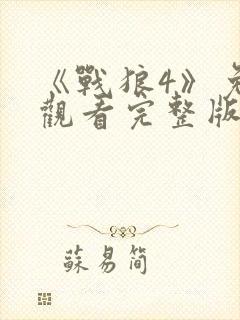 《戰狼4》免
觀看完整版
蘇易簡